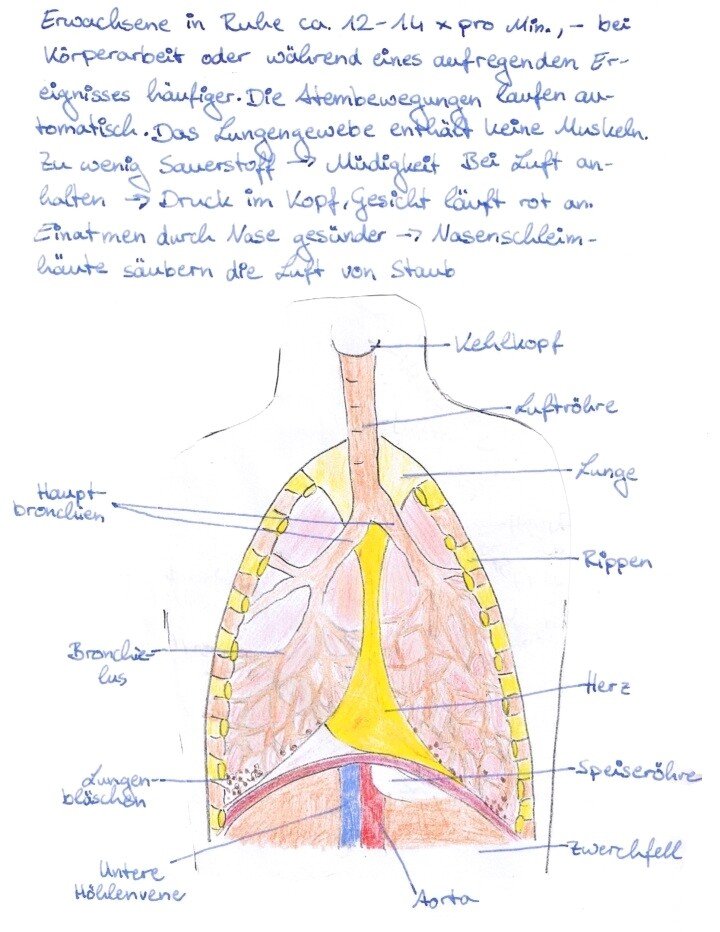 Erwachsene in Ruhe ca. 12-14 x pro Min., - bei
Körperarbeit oder während eines aufregenden Er-
eignisses häufiger. Die Atembewegungen laufen au-
tomatisch. Das Lungengewebe enthält keine Muskeln.
Zu wenig Sauerstoff → Müdigkeit Bei Luft an-
halten → Druck im Kopf, Gesicht läuft rot an.
Einatmen durch Nase gesünder → Nasenschleim-
häute säubern die Luft von Staub
Kehlkopf
Luftröhre
Lunge
Haupt-
bronchien
Rippen
Bronchie-
lus
Herz
Speiseröhre
Lungen-
bläschen
Zwerchfell
Untere
Höhlenvene
Aorta